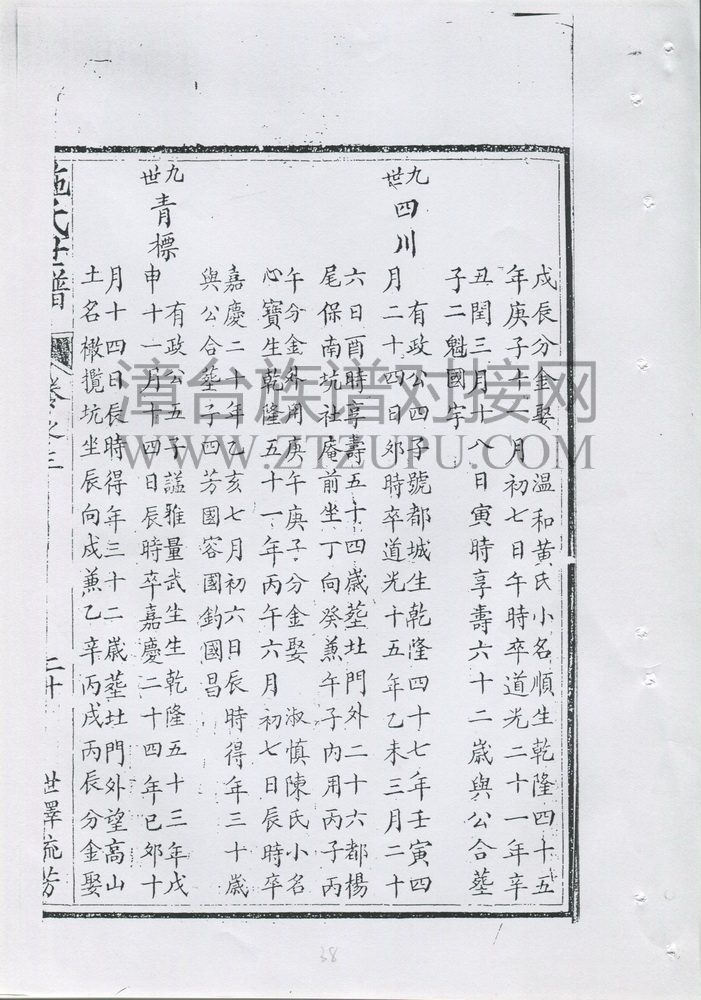 戊辰分金娶 温和黄氏小名順生乾隆四十五
年庚子十一月初七日午時卒道光二十一年辛
丑閏三月十八日寅時享壽六十二歲與公合塟
子二魁國宇
九世 四川 有政公四子號都城生乾隆四十七年壬寅四
月二十四日夘時卒道光十五年乙未三月二十
六日酉時享壽五十四歲塟北門外二十六都楊
尾保南坑社庵前坐丁向癸兼午子内用丙子丙
午分金外用庚午庚子分金娶 淑慎陳氏小名
心寶生乾隆五十一年丙午六月初七日辰時卒
嘉慶二十年乙亥七月初六日辰時得年三十歲
與公合塟子四芳國容國鈞國昌
九世 青標 有政公五子諡雅量武生生乾隆五十三年戊
申十一月十四日辰時卒嘉慶二十四年已夘十
月十四日辰時得年三十二歲塟北門外望高山
土名橄欖坑坐辰向戌兼乙辛丙戌丙辰分金娶
施氏世譜 卷之三 二十 世澤流芳
漳台族谱对接网
WWW.ZTZUPU.COM
38